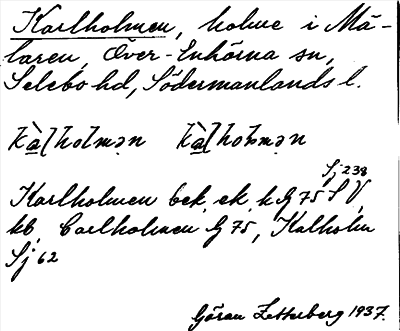 Karlholmen, holme i Mä-
laren, Över-Enhörna sn,
Selebo hd, Södermanlands l.
kàlholmən kàlhomən
Sj 238
Karlholmen bek. ek. k G 75 S V,
kb. Carlholmen G 75, Kalholm
Sj 62
Göran Zetterberg 1937.